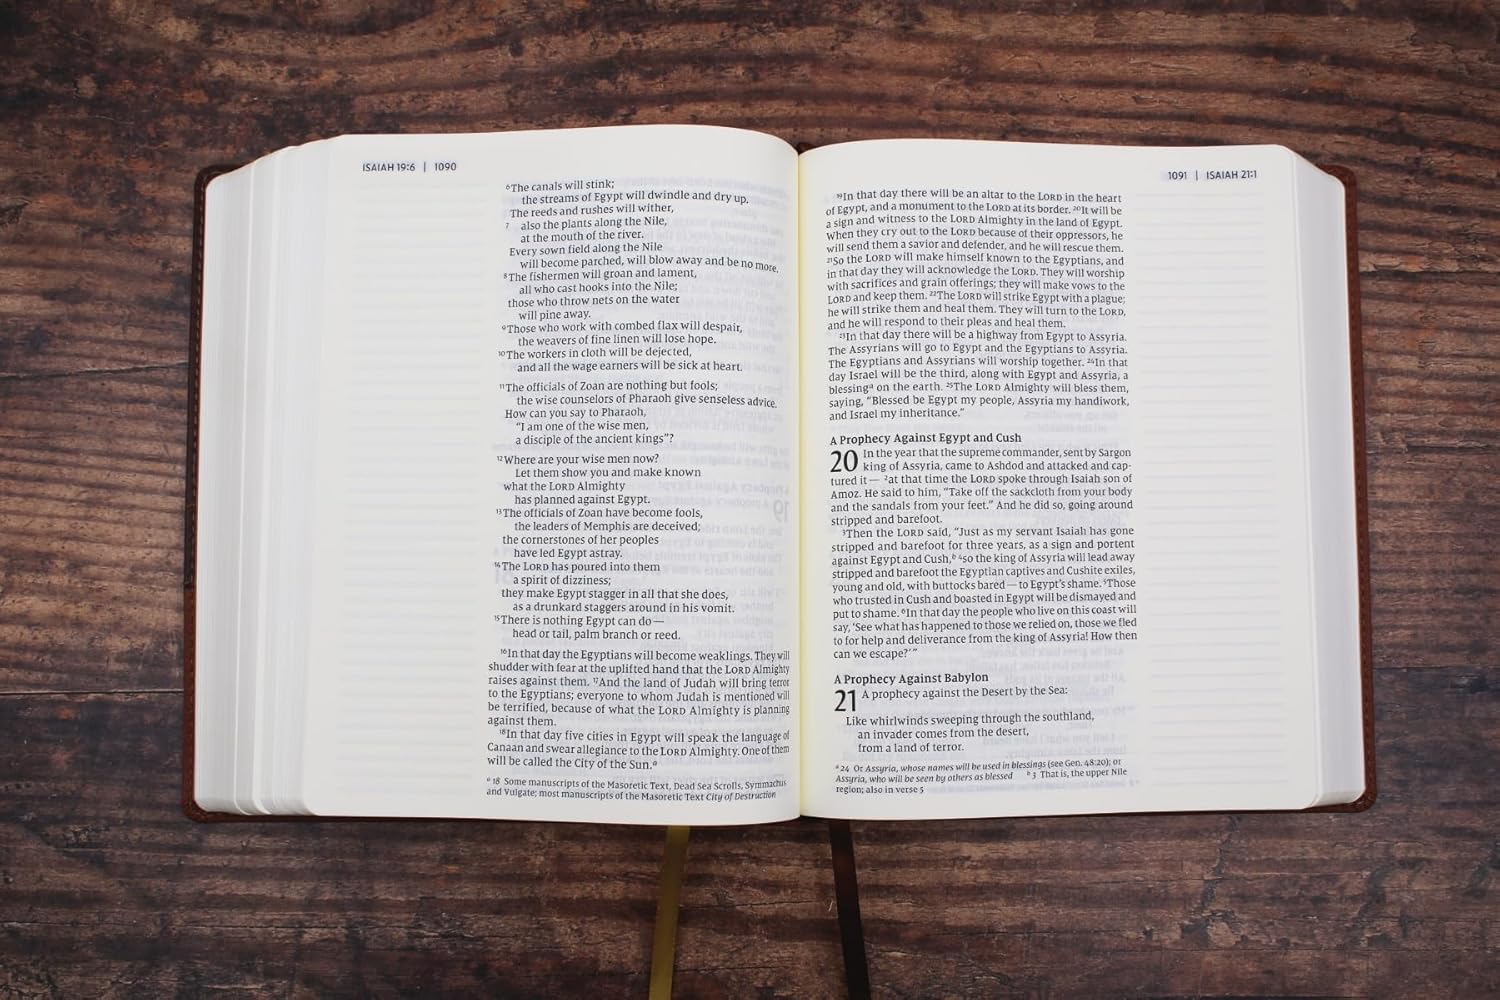 ISAIAH 19:6 | 1090
⁶The canals will stink;
the streams of Egypt will dwindle and dry up.
The reeds and rushes will wither,
⁷ also the plants along the Nile,
at the mouth of the river.
Every sown field along the Nile
will become parched, will blow away and be no more.
⁸The fishermen will groan and lament,
all who cast hooks into the Nile;
those who throw nets on the water
will pine away.
⁹Those who work with combed flax will despair,
the weavers of fine linen will lose hope.
¹⁰The workers in cloth will be dejected,
and all the wage earners will be sick at heart.
¹¹The officials of Zoan are nothing but fools;
the wise counselors of Pharaoh give senseless advice.
How can you say to Pharaoh,
“I am one of the wise men,
a disciple of the ancient kings”?
¹²Where are your wise men now?
Let them show you and make known
what the LORD Almighty
has planned against Egypt.
¹³The officials of Zoan have become fools,
the leaders of Memphis are deceived;
the cornerstones of her peoples
have led Egypt astray.
¹⁴The LORD has poured into them
a spirit of dizziness;
they make Egypt stagger in all that she does,
as a drunkard staggers around in his vomit.
¹⁵There is nothing Egypt can do—
head or tail, palm branch or reed.
¹⁶In that day the Egyptians will become weaklings. They will
shudder with fear at the uplifted hand that the LORD Almighty
raises against them. ¹⁷And the land of Judah will bring terror
to the Egyptians; everyone to whom Judah is mentioned will
be terrified, because of what the LORD Almighty is planning
against them.
¹⁸In that day five cities in Egypt will speak the language of
Canaan and swear allegiance to the LORD Almighty. One of them
will be called the City of the Sun.ᵃ
ᵃ 18 Some manuscripts of the Masoretic Text, Dead Sea Scrolls, Symmachus
and Vulgate; most manuscripts of the Masoretic Text City of Destruction
1091 | ISAIAH 21:1
¹⁹In that day there will be an altar to the LORD in the heart
of Egypt, and a monument to the LORD at its border. ²⁰It will be
a sign and witness to the LORD Almighty in the land of Egypt.
When they cry out to the LORD because of their oppressors, he
will send them a savior and defender, and he will rescue them.
²¹So the LORD will make himself known to the Egyptians, and
in that day they will acknowledge the LORD. They will worship
with sacrifices and grain offerings; they will make vows to the
LORD and keep them. ²²The LORD will strike Egypt with a plague;
he will strike them and heal them. They will turn to the LORD,
and he will respond to their pleas and heal them.
²³In that day there will be a highway from Egypt to Assyria.
The Assyrians will go to Egypt and the Egyptians to Assyria.
The Egyptians and Assyrians will worship together. ²⁴In that
day Israel will be the third, along with Egypt and Assyria, a
blessingᵃ on the earth. ²⁵The LORD Almighty will bless them,
saying, “Blessed be Egypt my people, Assyria my handiwork,
and Israel my inheritance.”
A Prophecy Against Egypt and Cush
20 In the year that the supreme commander, sent by Sargon
king of Assyria, came to Ashdod and attacked and cap-
tured it— ²at that time the LORD spoke through Isaiah son of
Amoz. He said to him, “Take off the sackcloth from your body
and the sandals from your feet.” And he did so, going around
stripped and barefoot.
³Then the LORD said, “Just as my servant Isaiah has gone
stripped and barefoot for three years, as a sign and portent
against Egypt and Cush,ᵇ ⁴so the king of Assyria will lead away
stripped and barefoot the Egyptian captives and Cushite exiles,
young and old, with buttocks bared—to Egypt’s shame. ⁵Those
who trusted in Cush and boasted in Egypt will be dismayed and
put to shame. ⁶In that day the people who live on this coast will
say, ‘See what has happened to those we relied on, those we fled
to for help and deliverance from the king of Assyria! How then
can we escape?’”
A Prophecy Against Babylon
21 A prophecy against the Desert by the Sea:
Like whirlwinds sweeping through the southland,
an invader comes from the desert,
from a land of terror.
ᵃ 24 Or Assyria, whose names will be used in blessings (see Gen. 48:20); or
Assyria, who will be seen by others as blessed ᵇ 3 That is, the upper Nile
region; also in verse 5